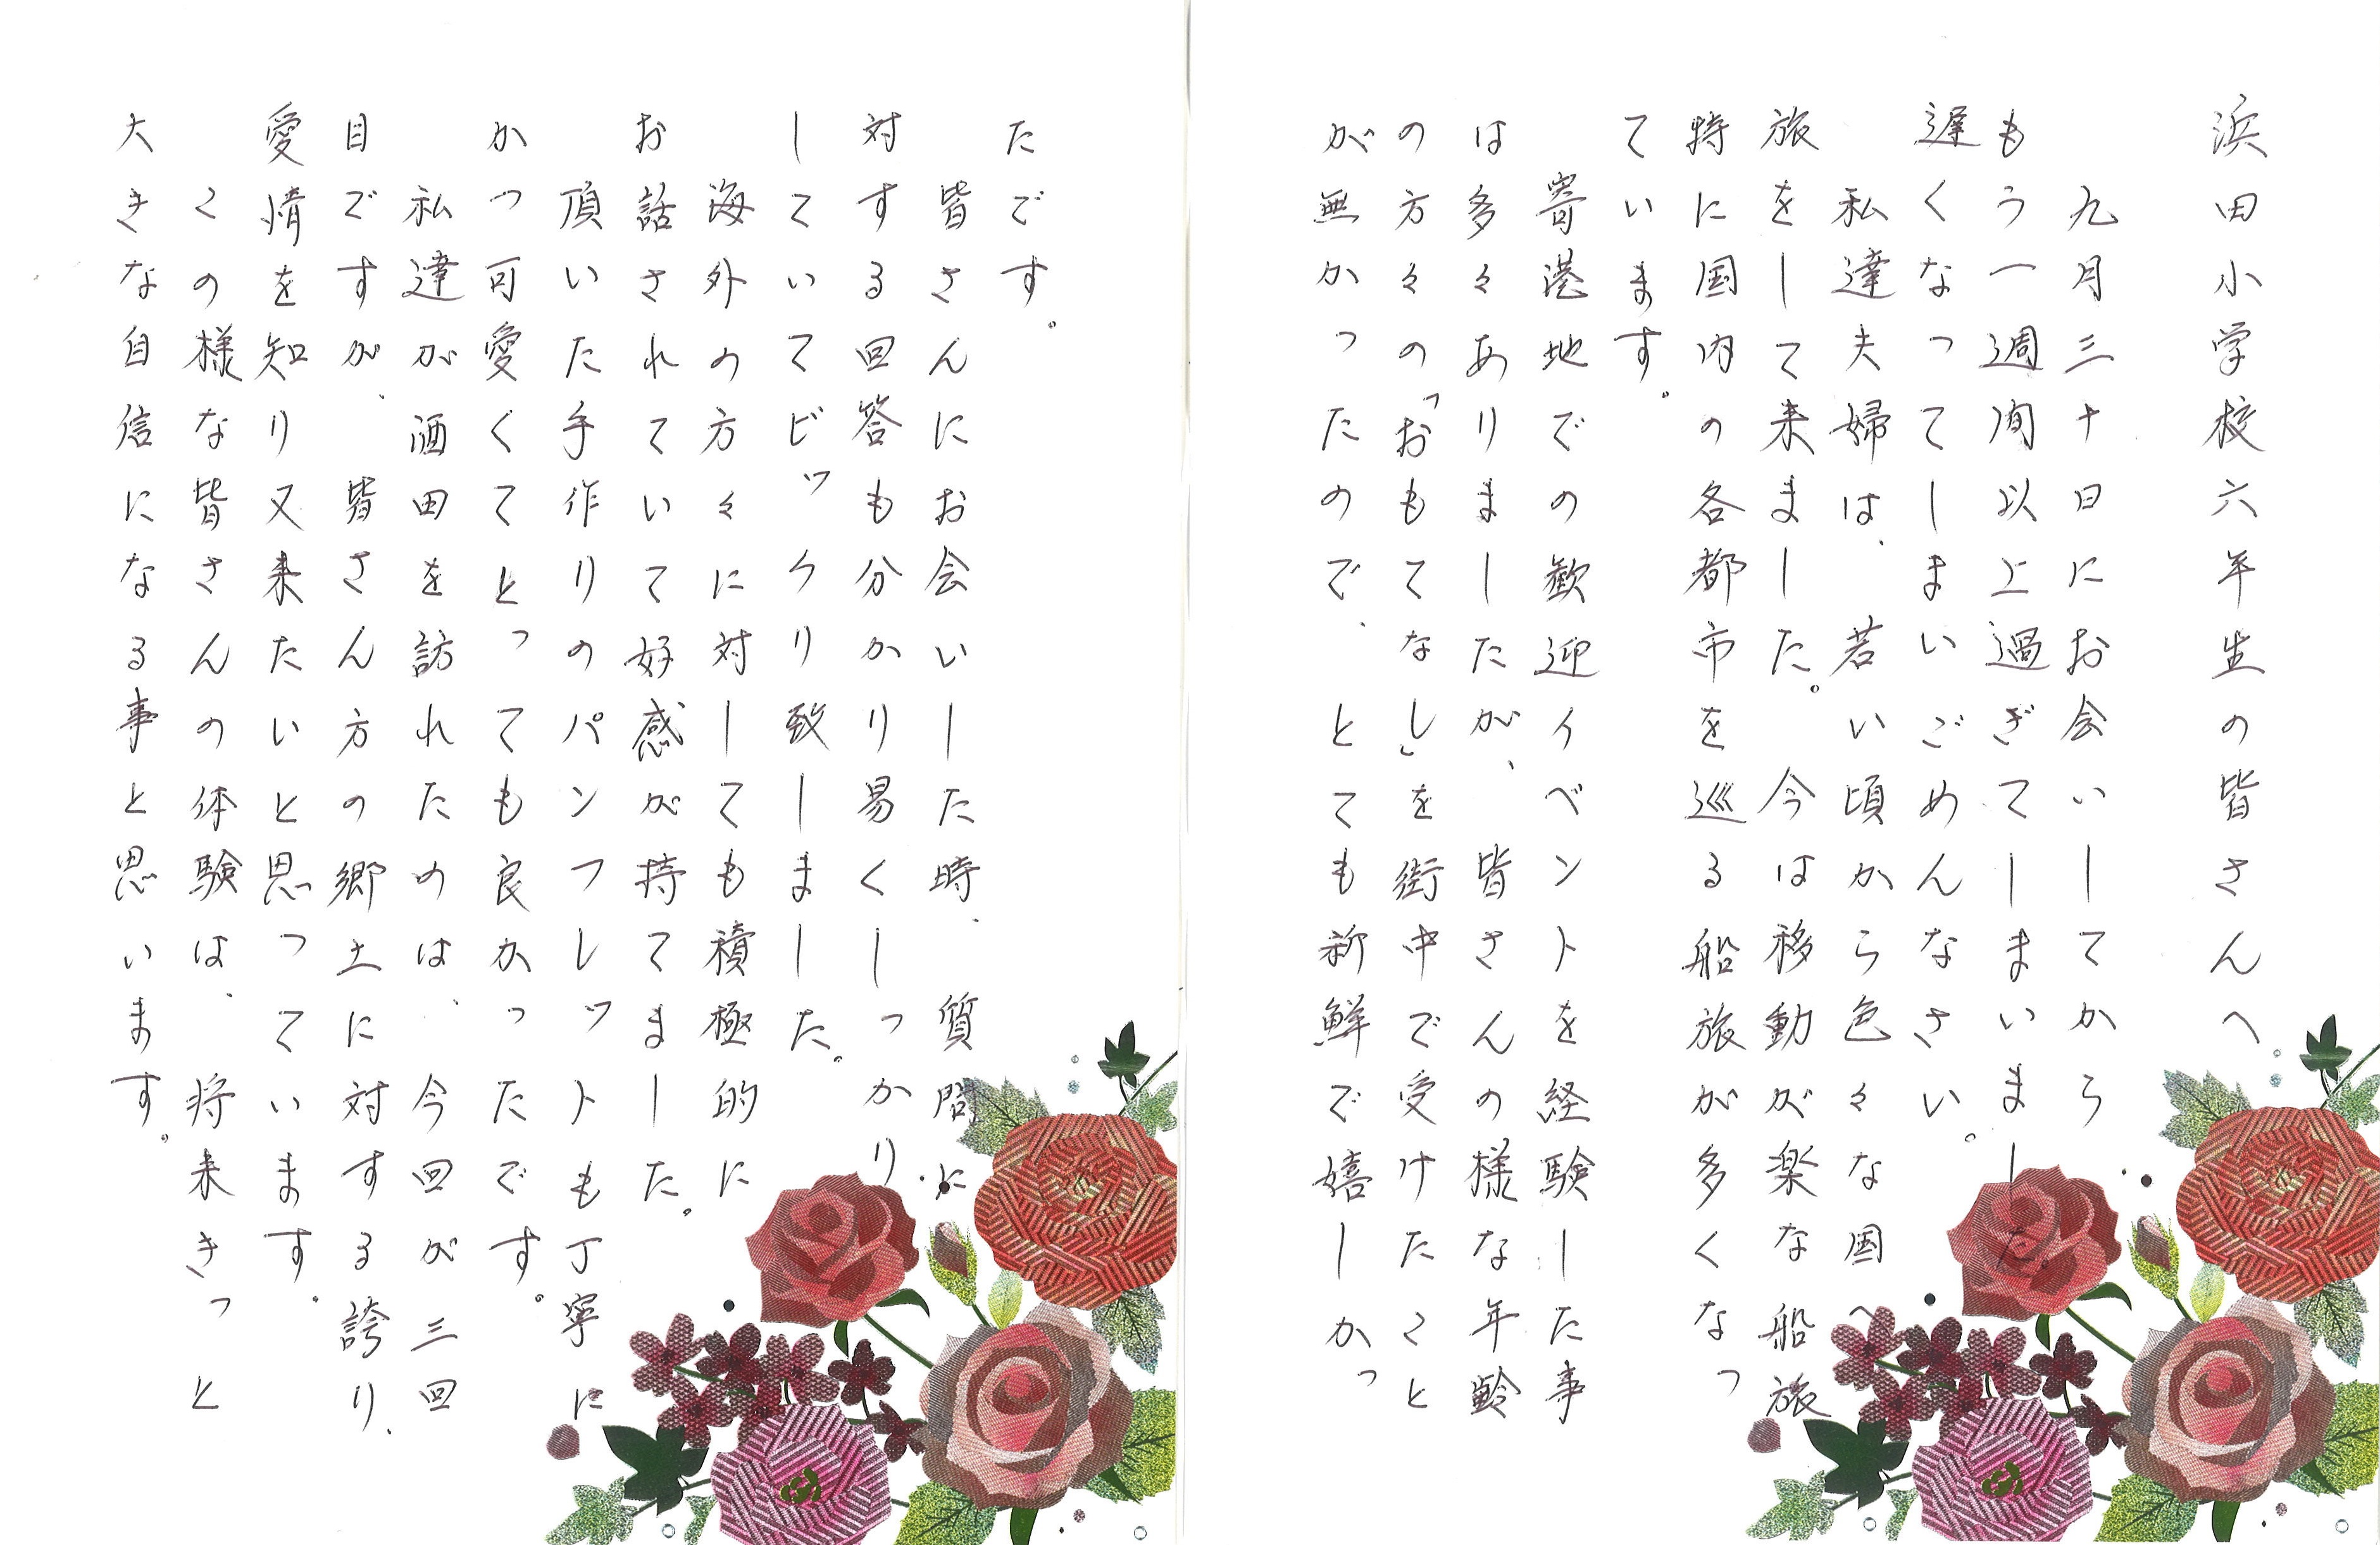 浜田小学校六年生の皆さんへ
九月三十日にお会いしてから
もう一週間以上過ぎてしまいました。
遅くなってしまいごめんなさい。
私達夫婦は、若い頃から色々な国へ
旅をして来ました。今は移動が楽な船旅
特に国内の各都市を巡る船旅が多くなっ
ています。
寄港地での歓迎イベントを経験した事
は多々ありましたが、皆さんの様な年齢
の方々の「おもてなし」を街中で受けたこと
が無かったので、とても新鮮で嬉しかっ
たです。
皆さんにお会いした時、質問に
対する回答も分かり易くしっかり
していてビックリ致しました。
海外の方々に対しても積極的に
お話されていて好感が持てました。
頂いた手作りのパンフレットも丁寧に
かつ可愛くてとっても良かったです。
私達が酒田を訪れたのは、今回が三回
目ですが、皆さん方の郷土に対する誇り、
愛情を知り又来たいと思っています。
この様な皆さんの体験は、将来きっと
大きな自信になる事と思います。